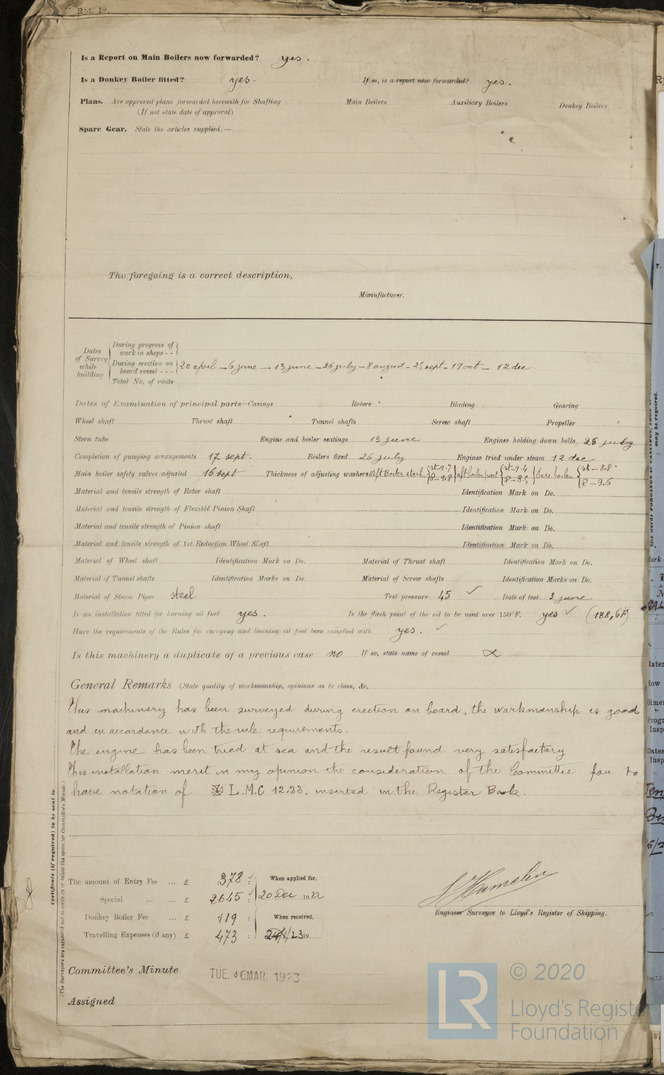 Rpt. 1
Is a Report on Main Boilers now forwarded? yes.
Is a Donkey Boiler fitted? yes. If so, is a report now forwarded? yes.
Plans. Are approved plans forwarded herewith for Shafting Main Boilers Auxiliary Boilers Donkey Boilers
(If not state date of approval)
Spare Gear. State the articles supplied:—
The foregoing is a correct description,
Manufacturer.
Dates of Survey while building
During progress of work in shops - -
During erection on board vessel - - 20 april – 6 june – 13 june – 26 july – 8 august – 2 sept – 19 oct – 12 dec
Total No. of visits
Dates of Examination of principal parts—Casings Rotors Blading Gearing
Wheel shaft Thrust shaft Tunnel shafts Screw shaft Propeller
Stern tube Engine and boiler seatings 13 june Engines holding down bolts 26 july
Completion of pumping arrangements 17 sept. Boilers fixed 26 july Engines tried under steam 12 dec
Main boiler safety valves adjusted 16 sept Thickness of adjusting washers
Material and tensile strength of Rotor shaft Identification Mark on Do.
Material and tensile strength of Flexible Pinion Shaft Identification Mark on Do.
Material and tensile strength of Pinion shaft Identification Mark on Do.
Material and tensile strength of 1st Reduction Wheel Shaft Identification Mark on Do.
Material of Wheel shaft Identification Mark on Do. Material of Thrust shaft Identification Mark on Do.
Material of Tunnel shafts Identification Marks on Do. Material of Screw shafts Identification Marks on Do.
Material of Steam Pipes steel Test pressure 45 ✓ Date of test 3 june
Is an installation fitted for burning oil fuel yes. Is the flash point of the oil to be used over 150°F. yes ✓ (188,6F)
Have the requirements of the Rules for carrying and burning oil fuel been complied with yes. ✓
Is this machinery a duplicate of a previous case no If so, state name of vessel
General Remarks (State quality of workmanship, opinions as to class, &c.
This machinery has been surveyed during erection on board, the workmanship is good
and in accordance with the rule requirements.
The engine has been tried at sea and the result found very satisfactory
This installation merit in my opinion the consideration of the Committee for to
have notation of L.M.C 12.22. inserted in the Register Book.
Certificate (if required) to be sent to
(The Surveyors are requested not to write on or below the space for Committee's Minute.)
The amount of Entry Fee ... £ 378 : When applied for,
Special ... ... £ 2645 : 20 Dec 1922
Donkey Boiler Fee ... £ 119 : When received,
Travelling Expenses (if any) £ 473 : 23
Hamelin
Engineer Surveyor to Lloyd's Register of Shipping.
Committee's Minute TUE. MAR. 1923
Assigned
LR © 2020
Lloyd's Register
Foundation